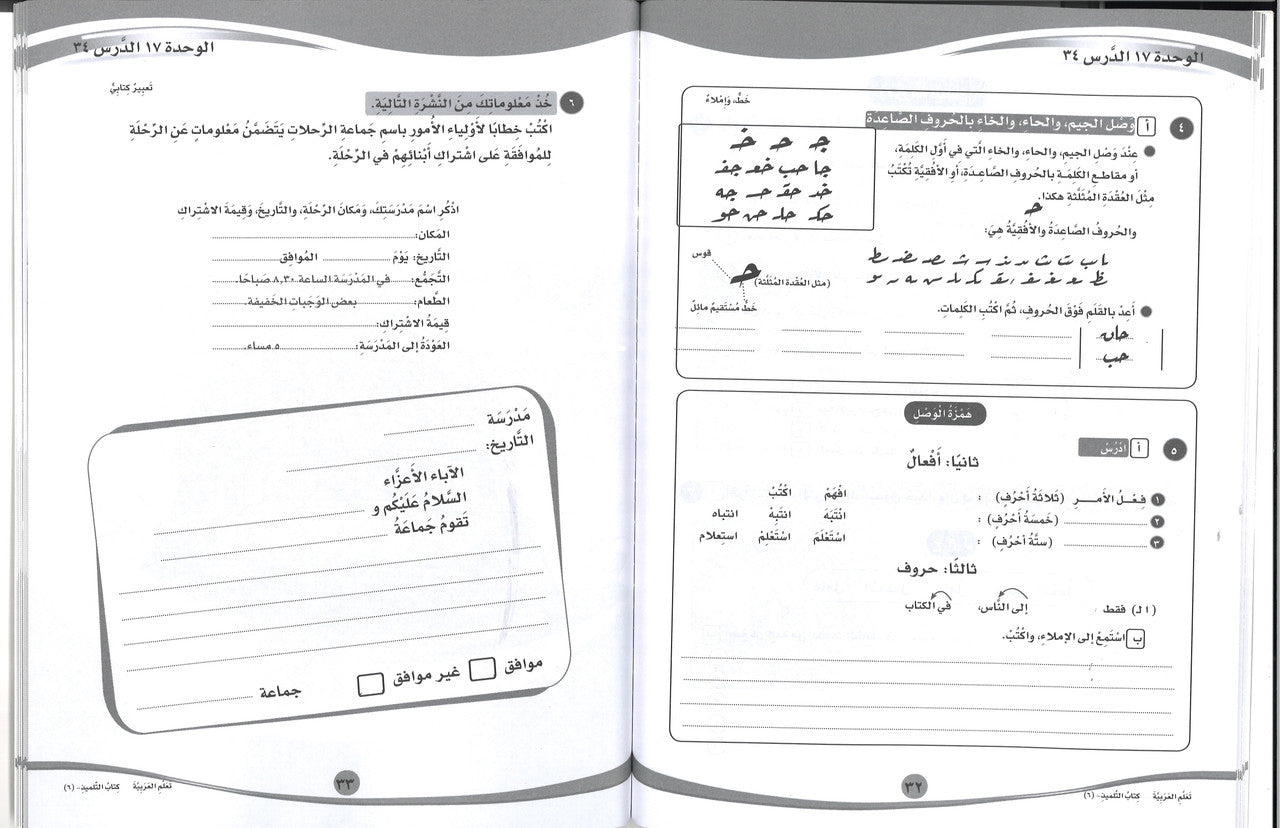 الوحدة ١٧ الدَّرس ٣٤
خَطٌّ، وَإمْلاءٌ
٤ أ وَصْل الجيم، والحاءِ، والخاءِ بالحُروفِ الصّاعِدَةِ
عِنْدَ وَصْلِ الجيمِ، والحاءِ، والخاءِ الَّتي في أوَّلِ الكَلِمَةِ،
أو مقاطِعِ الكَلِمَةِ بالحُروفِ الصّاعِدَةِ، أوِ الأُفُقِيَّةِ تُكْتَبُ
مِثْلَ العُقْدَةِ المُثَلَّثَةِ هكذا.
حـ
والحُروفُ الصّاعِدَةُ والأُفُقِيَّةُ هِيَ:
جـ حـ خـ
جا حب خعـ جفـ
خد حقـ حـ جه
حكـ حلـ حن حو
قوس
(مثل العقدة المُثلَّثة)
خطٌّ مُسْتَقيمٌ مائِلٌ
أَعِدْ بالقَلَمِ فَوْقَ الحُروفِ، ثُمَّ اكْتُبِ الكَلِماتِ.
حب
هَمْزَةُ الْوَصْلِ
٥ أ ادْرُسْ
ثانيًا: أَفْعالٌ
١ فِعْلُ الأَمـرِ (ثَلاثَةُ أَحْرُفٍ) : افْهَمْ اكْتُبْ
٢ (خَمسَةُ أَحْرُفٍ) : انْتَبَهَ انتَبِهْ انتباه
٣ (ستَّةُ أحْرُفٍ) : اسْتَعْلَمَ اسْتَعْلِمْ استِعلام
ثالثًا: حروف
(الـ) فقط إلى النَّاس، في الكتاب
ب اسْتَمِعْ إلى الإملاءِ، واكْتُبْ.
٣٢
تَعَلُّم العَرَبِيَّةِ كِتابُ التِّلميذِ- (٦)
الوحدة ١٧ الدَّرس ٣٤
تَعبِيرٌ كِتابِيٌّ
٦ خُذْ مَعْلوماتِكَ مِنَ النَّشْرَةِ التّالِيَةِ.
اكْتُبْ خِطابًا لأَوْلِياءِ الأُمورِ باسمِ جَماعةِ الرِّحلاتِ يَتَضَمَّنُ مَعْلوماتٍ عَنِ الرِّحْلَةِ
لِلمُوافَقَةِ عَلى اشتِراكِ أَبْنائِهِمْ في الرِّحْلَةِ.
اذْكُرِ اسْمَ مَدْرَسَتِكَ، وَمَكانَ الرِّحْلَةِ، والتَّاريخَ، وَقيمَةَ الاشْتِراكِ
المَكان:
التَّاريخ: يَوْمَ المُوافِق
التَّجَمُّع: في المَدْرَسَةِ الساعة ٨,٣٠ صَباحًا.
الطَّعام: بعض الوَجَباتِ الخَفيفَة.
قِيمَةُ الاشْتِراكِ:
العَوْدَةُ إلى المَدْرَسَةِ: ٥ مساءً.
مَدْرَسَة
التَّاريخ:
الآباء الأَعِزَّاء
السَّلامُ عَلَيْكُم و
تَقومُ جَماعَةُ
موافق غير موافق
جماعة
٣٣
تَعَلُّم العَرَبِيَّةِ كِتابُ التِّلميذِ- (٦)